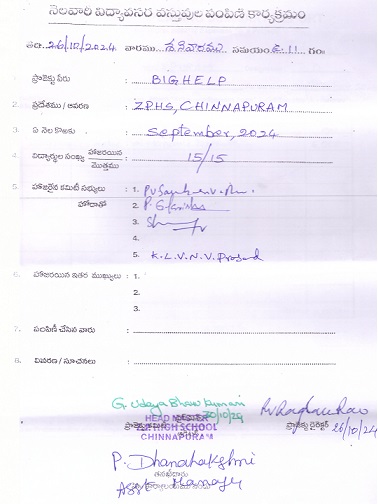 నెలవారీ విద్యావసర వస్తువుల పంపిణీ కార్యక్రమం
తేది: 26/10/2024 వారము శనివారము సమయం ఉ. 11 గం
1. ప్రాజెక్టు పేరు : BIGHELP
2. ప్రదేశము / ఆవరణ : ZPHS, CHINNAPURAM
3. ఏ నెల కొఱకు : September, 2024
4. విద్యార్థుల సంఖ్య హాజరయిన / మొత్తము : 15/15
5. హాజరైన కమిటీ సభ్యులు : 1.
హోదాతో 2.
3.
4.
5. K.L.V.N.V. Prasad
6. హాజరయిన ఇతర ముఖ్యులు : 1.
2.
3.
7. పంపిణీ చేసిన వారు :
8. వివరణ / సూచనలు :
G. Udaya Bhaw Kumari
HEAD MASTER 30/10/24
Z.P. HIGH SCHOOL
CHINNAPURAM
ప్రాజెక్టు డైరెక్టర్ 26/10/24
P. Dhanalakshmi
తనిఖీదారు
Asst Manager